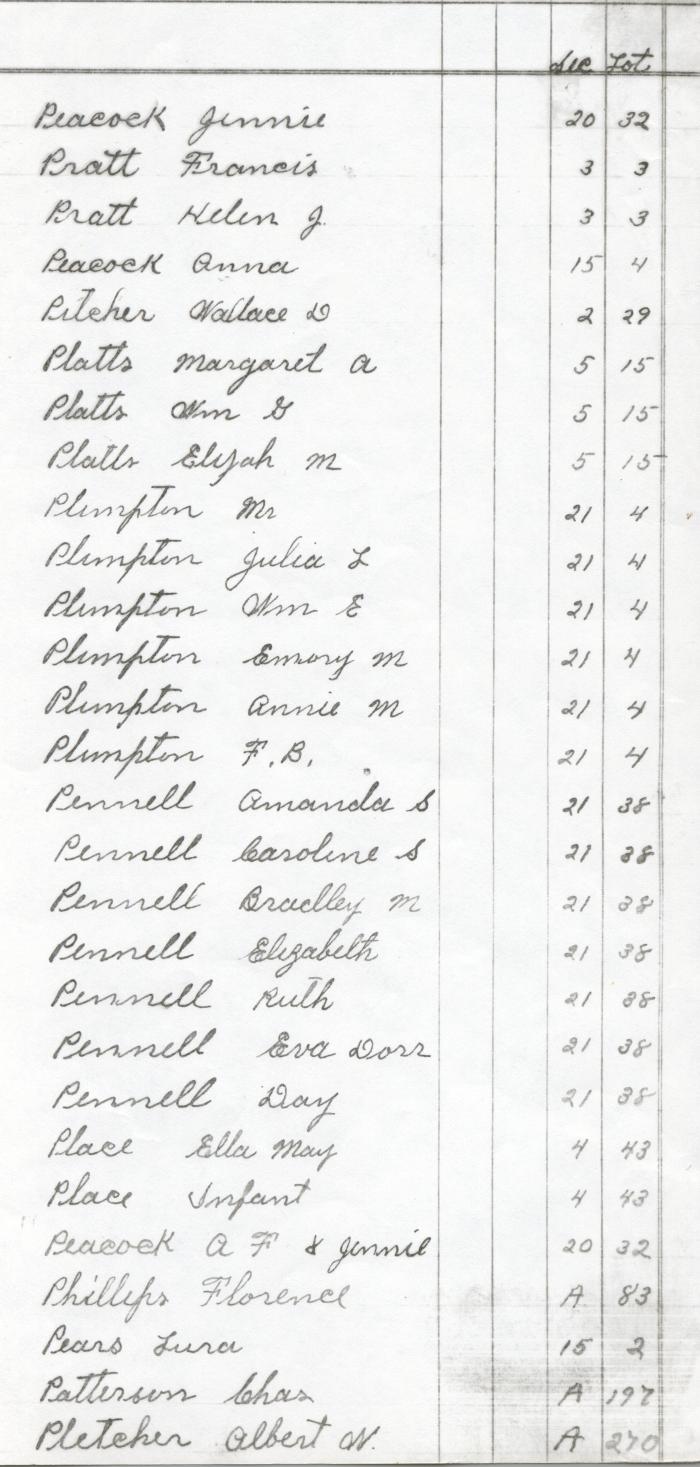 Sec Lot
Peacock Jennie 20 32
Pratt Francis 3 3
Pratt Helen J. 3 3
Peacock Anna 15 4
Pitcher Wallace D 2 29
Platts Margaret A 5 15
Platts Wm G 5 15
Platts Elijah M 5 15
Plumpton Mr 21 4
Plumpton Julia L 21 4
Plumpton Wm E 21 4
Plumpton Emory M 21 4
Plumpton Annie M 21 4
Plumpton F. B. 21 4
Pennell Amanda S 21 38
Pennell Caroline S 21 38
Pennell Bradley M 21 38
Pennell Elizabeth 21 38
Pennell Ruth 21 38
Pennell Eva Dorr 21 38
Pennell Day 21 38
Place Ella May 4 43
Place Infant 4 43
Peacock A F & Jennie 20 32
Phillips Florence A 83
Pears Lura 15 2
Patterson Chas A 197
Pletcher Albert W. A 270